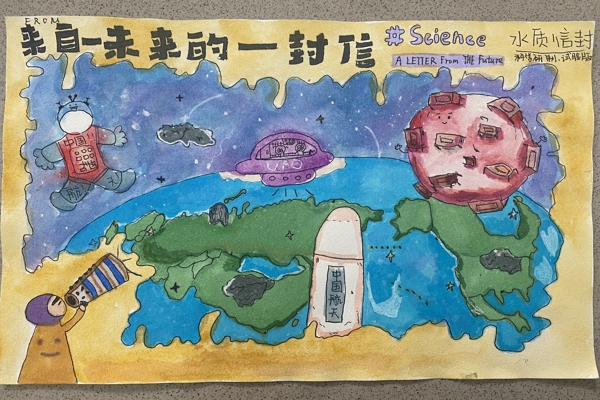 FROM
来自一未来的一封信
# Science
A LETTER From THE Future
水质信封
中国
UFO
中国航天